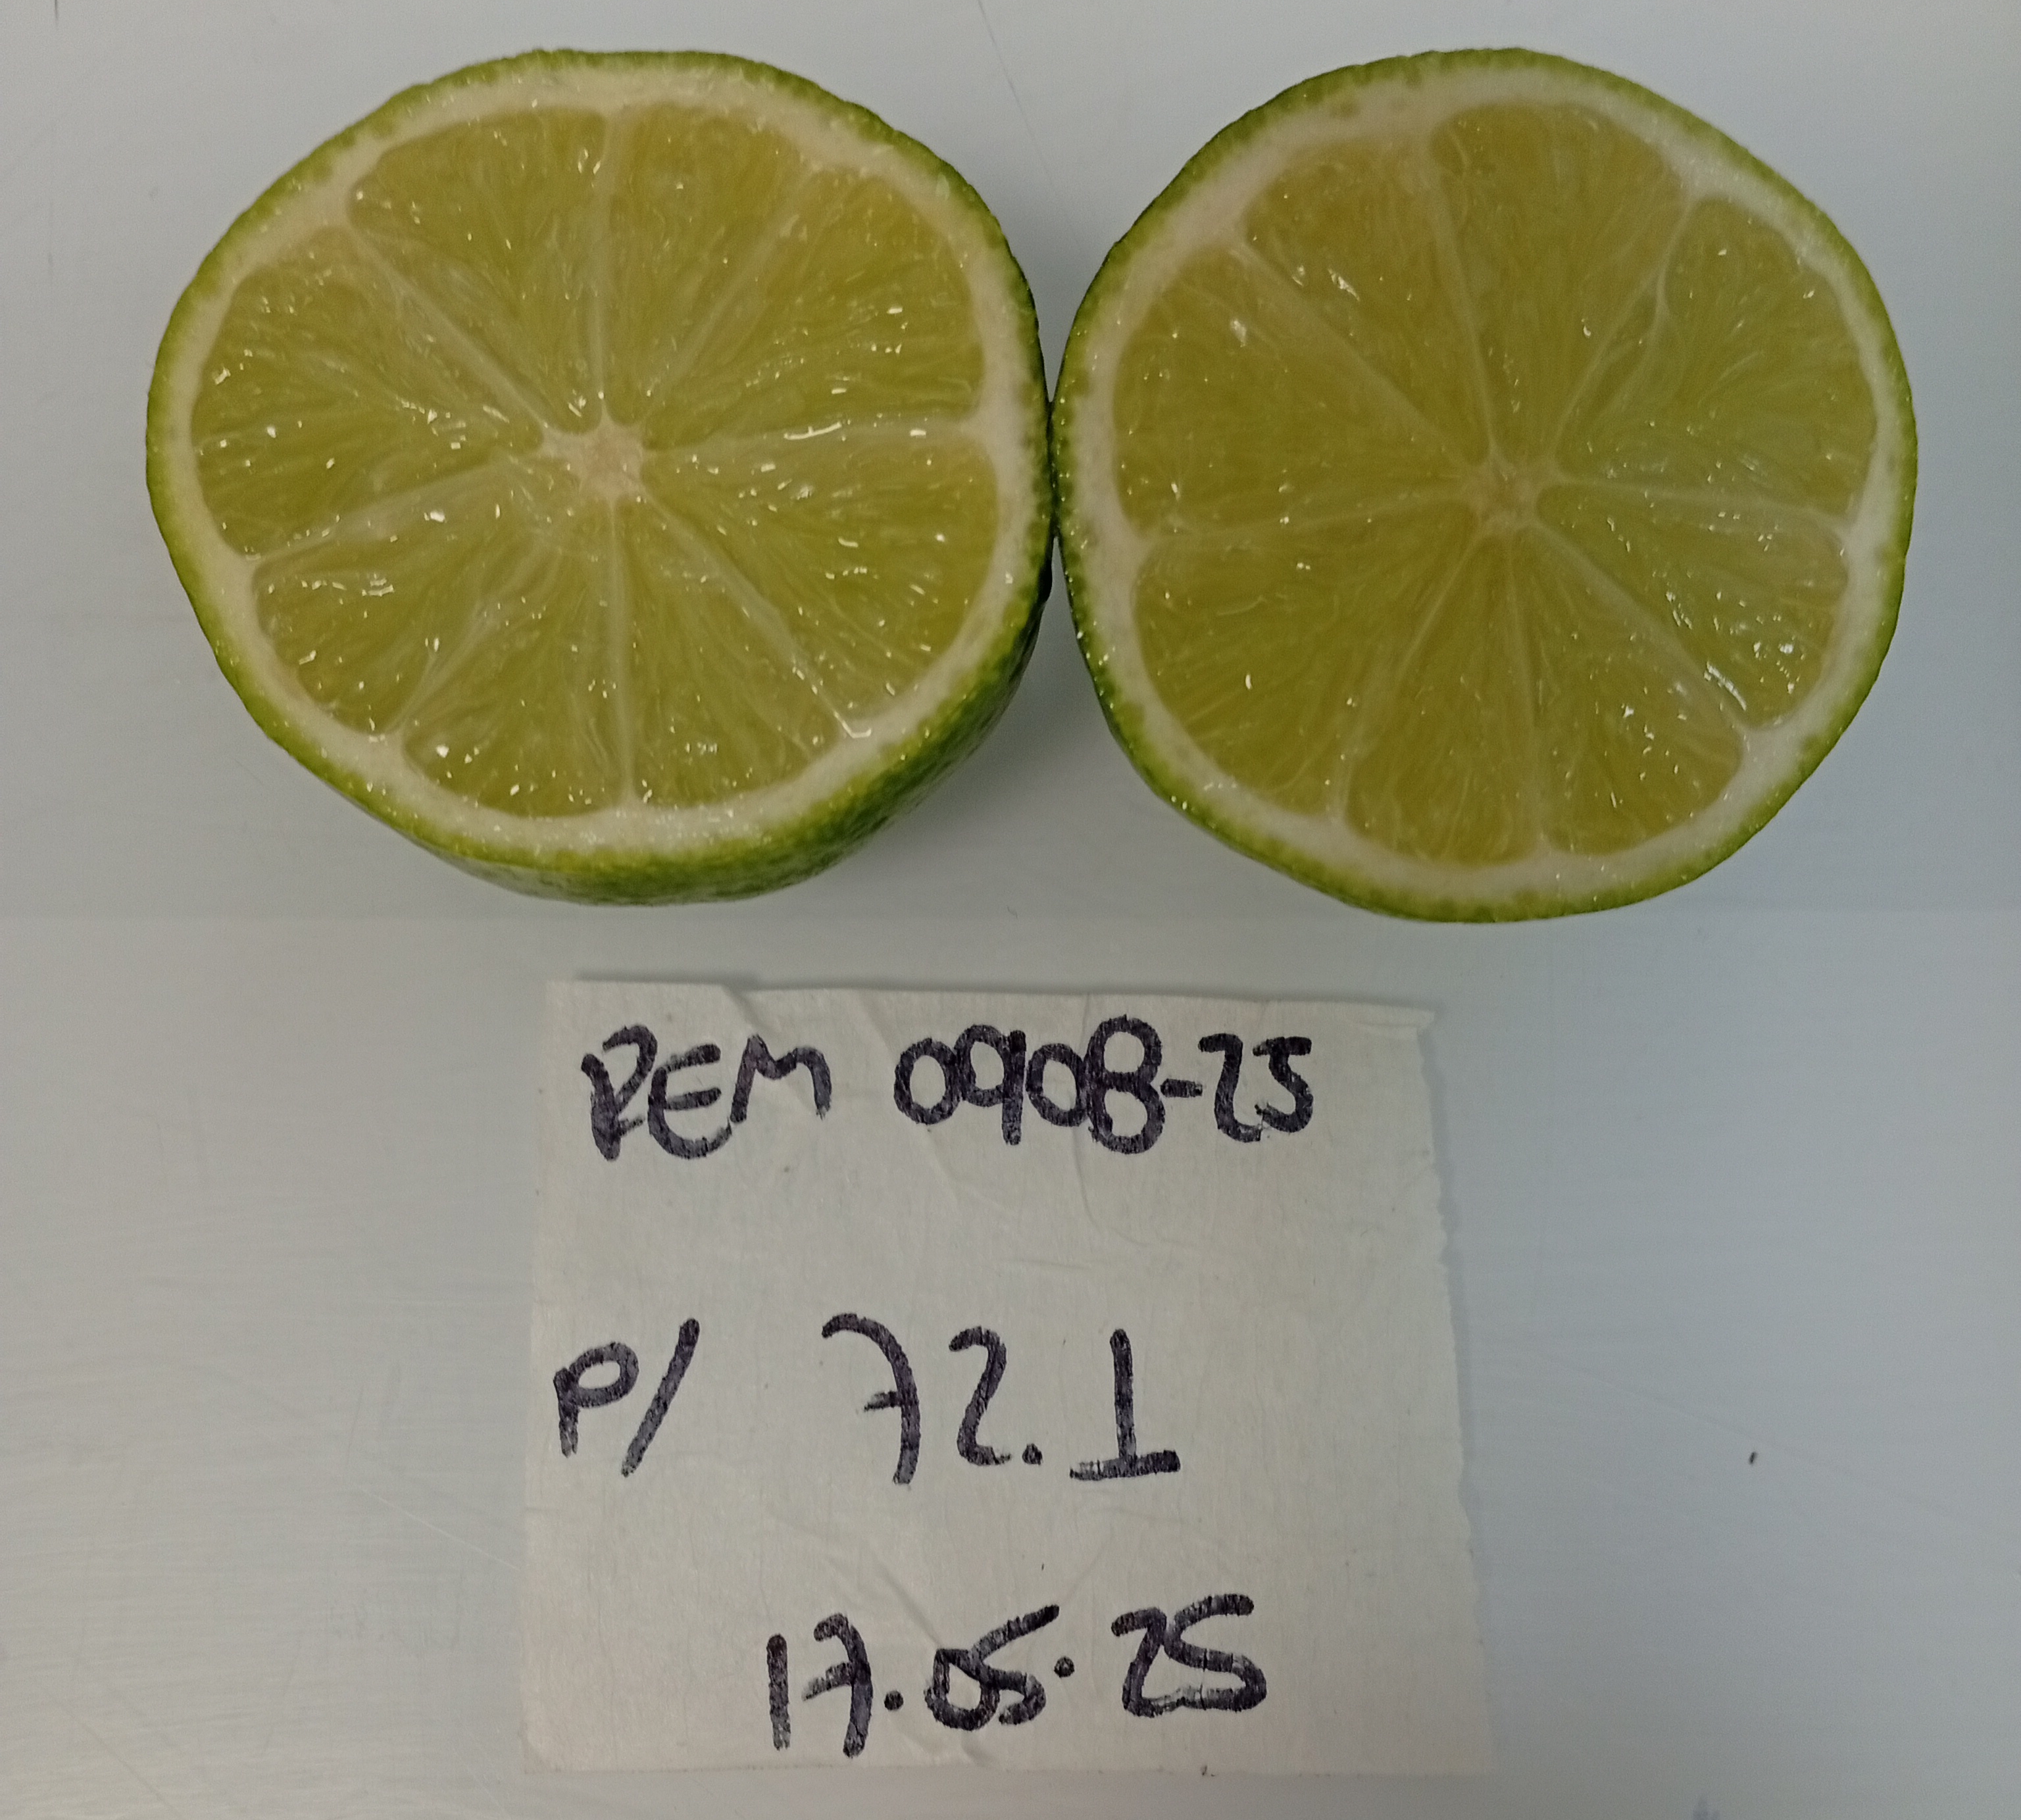 REM 0908-25
P/ 72.1
17.05.25